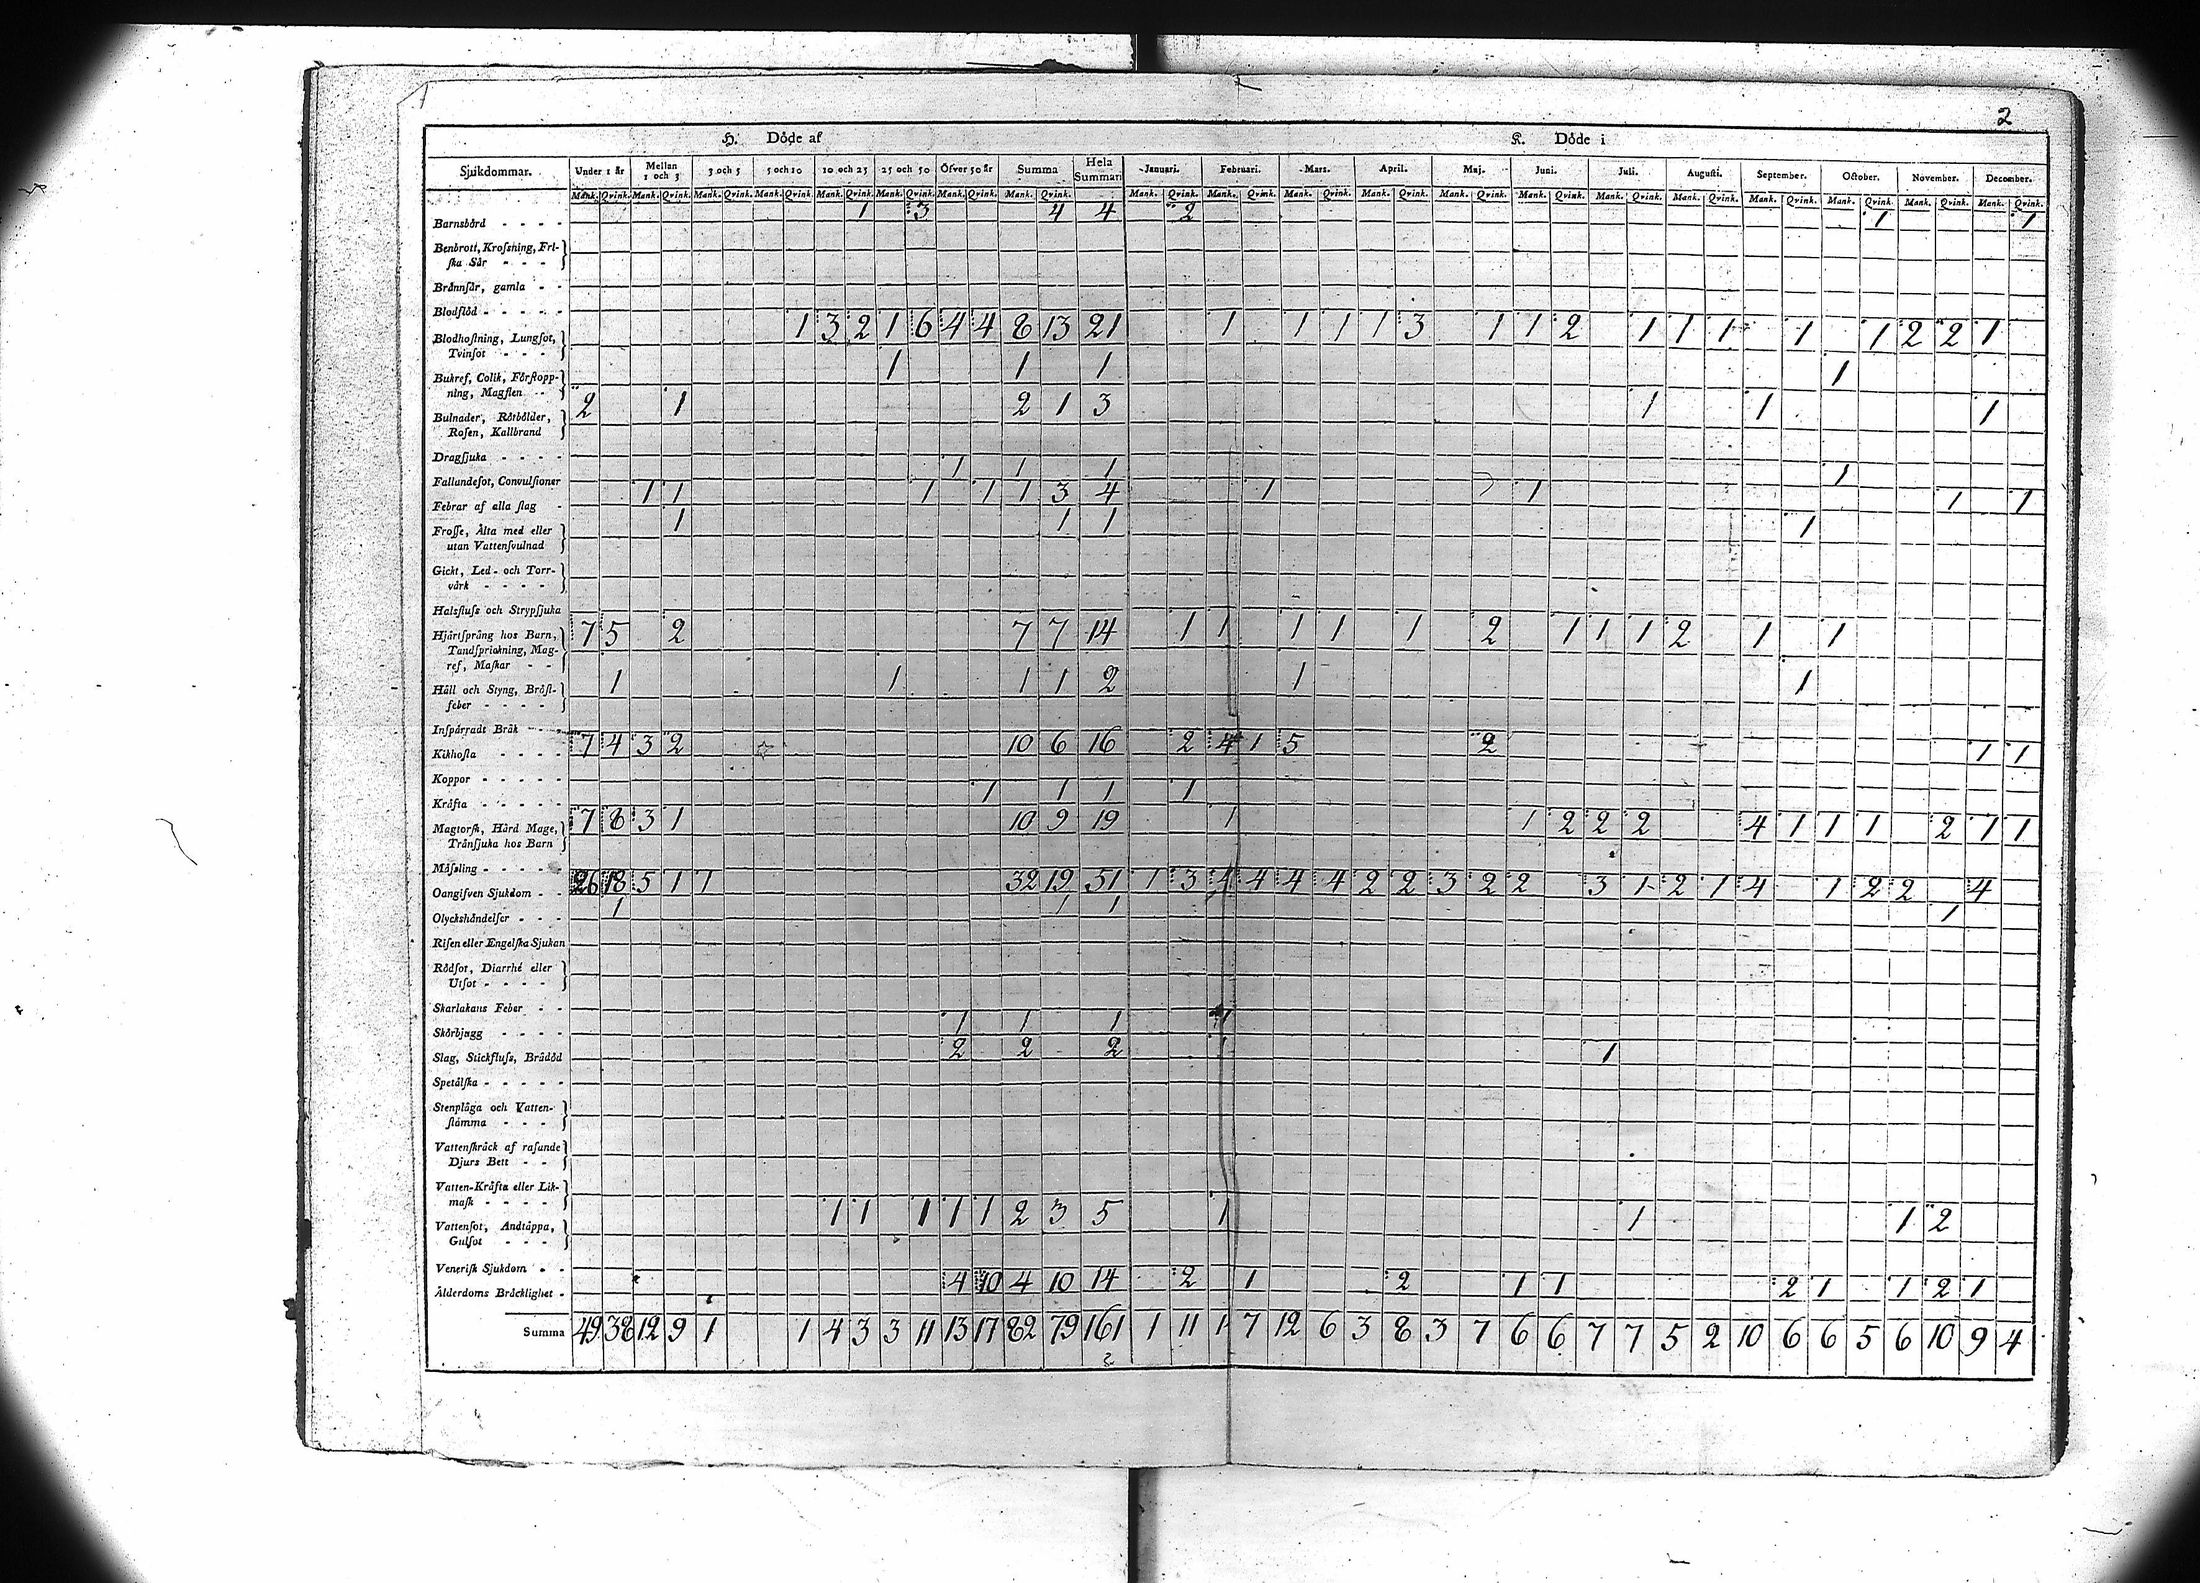 2
H. Döde af K. Döde i
Sjukdommar. Under 1 år Mellan 1 och 3 3 och 5 5 och 10 10 och 25 25 och 50 Öfver 50 år Summa Hela Summan Januari. Februari. Mars. April. Maj. Juni. Juli. Augusti. September. October. November. December.
Mank. Qvink. Mank. Qvink. Mank. Qvink. Mank. Qvink. Mank. Qvink. Mank. Qvink. Mank. Qvink. Mank. Qvink. Mank. Qvink. Mank. Qvink. Mank. Qvink. Mank. Qvink. Mank. Qvink. Mank. Qvink. Mank. Qvink. Mank. Qvink. Mank. Qvink. Mank. Qvink. Mank. Qvink. Mank. Qvink.
Barnsbörd - - - - 1 3 4 4 2 1 1
Benbrott, Krossning, Fri-
ska Sår - - -
Brännsår, gamla - -
Blodflöd - - - - -
Blodhostning, Lungsot, 1 3 2 1 6 4 4 8 13 21 1 1 1 1 3 1 1 2 1 1 1 1 1 2 2 1
Tvinsot - - -
Bukref, Colik, Förstopp- 1 1 1 1
ning, Magsten - -
Bulnader, Rötbölder, 2 1 2 1 3 1 1 1
Rosen, Kallbrand
Dragsjuka - - - -
Fallandesot, Convulsioner 1 1 1 1
Febrar af alla slag - 1 1 1 1 1 3 4 1 1 1 1
Frosse, Älta med eller 1 1 1 1
utan Vattensvulnad
Gickt, Led- och Torr-
värk - - - -
Halsfluss och Strypsjuka
Hjärtsprång hos Barn, 7 5 2 7 7 14 1 1 1 1 1 2 1 1 1 2 1 1
Tandsprickning, Mag-
ref, Maskar - -
Håll och Styng, Bröst- 1 1 1 1 2 1 1
feber - - - -
Inspärradt Bråk - - -
Kikhosta - - - - 7 4 3 2 10 6 16 2 4 1 5 2 1 1
Koppor - - - - -
Kräfta - - - - - 1 1 1 1
Magtorsk, Hård Mage, 7 8 3 1 10 9 19 1 1 2 2 2 4 1 1 1 2 1 1
Tränsjuka hos Barn
Mässling - - - - -
Oangifven Sjukdom - - 26 18 5 1 1 32 19 51 1 3 4 4 4 2 2 3 2 2 3 1 2 1 4 1 2 2 4
Olyckshändelser - - - 1 1 1 1
Risen eller Engelska Sjukan
Rödsot, Diarrhé eller
Utsot - - - -
Skarlakans Feber - -
Skörbjugg - - - - 1 1 1 1
Slag, Stickfluss, Brådöd 2 2 2 1 1
Spetälska - - - - -
Stenplåga och Vatten-
stämma - - -
Vattenskräck af rasande
Djurs Bett - -
Vatten-Kräfta eller Lik-
mask - - - -
Vattensot, Andtäppa, 1 1 1 1 1 2 3 5 1 1 1 2
Gulsot - - -
Venerisk Sjukdom - -
Ålderdoms Bräcklighet - 4 10 4 10 14 2 1 2 1 1 2 1 1 2 1
Summa 49 38 12 9 1 1 4 3 3 11 13 17 82 79 161 1 11 7 12 6 3 8 3 7 6 6 7 7 5 2 10 6 6 5 6 10 9 4